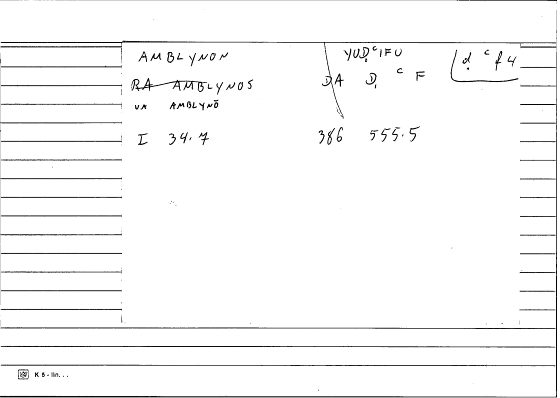 AMBLYNON YUḌᶜIFU ḍ ᶜ f 4
RA AMBLYNOS DA Ḍ ᶜ F
VA AMBLYNŌ
I 34.7 386 555.5
K 5 - lin...